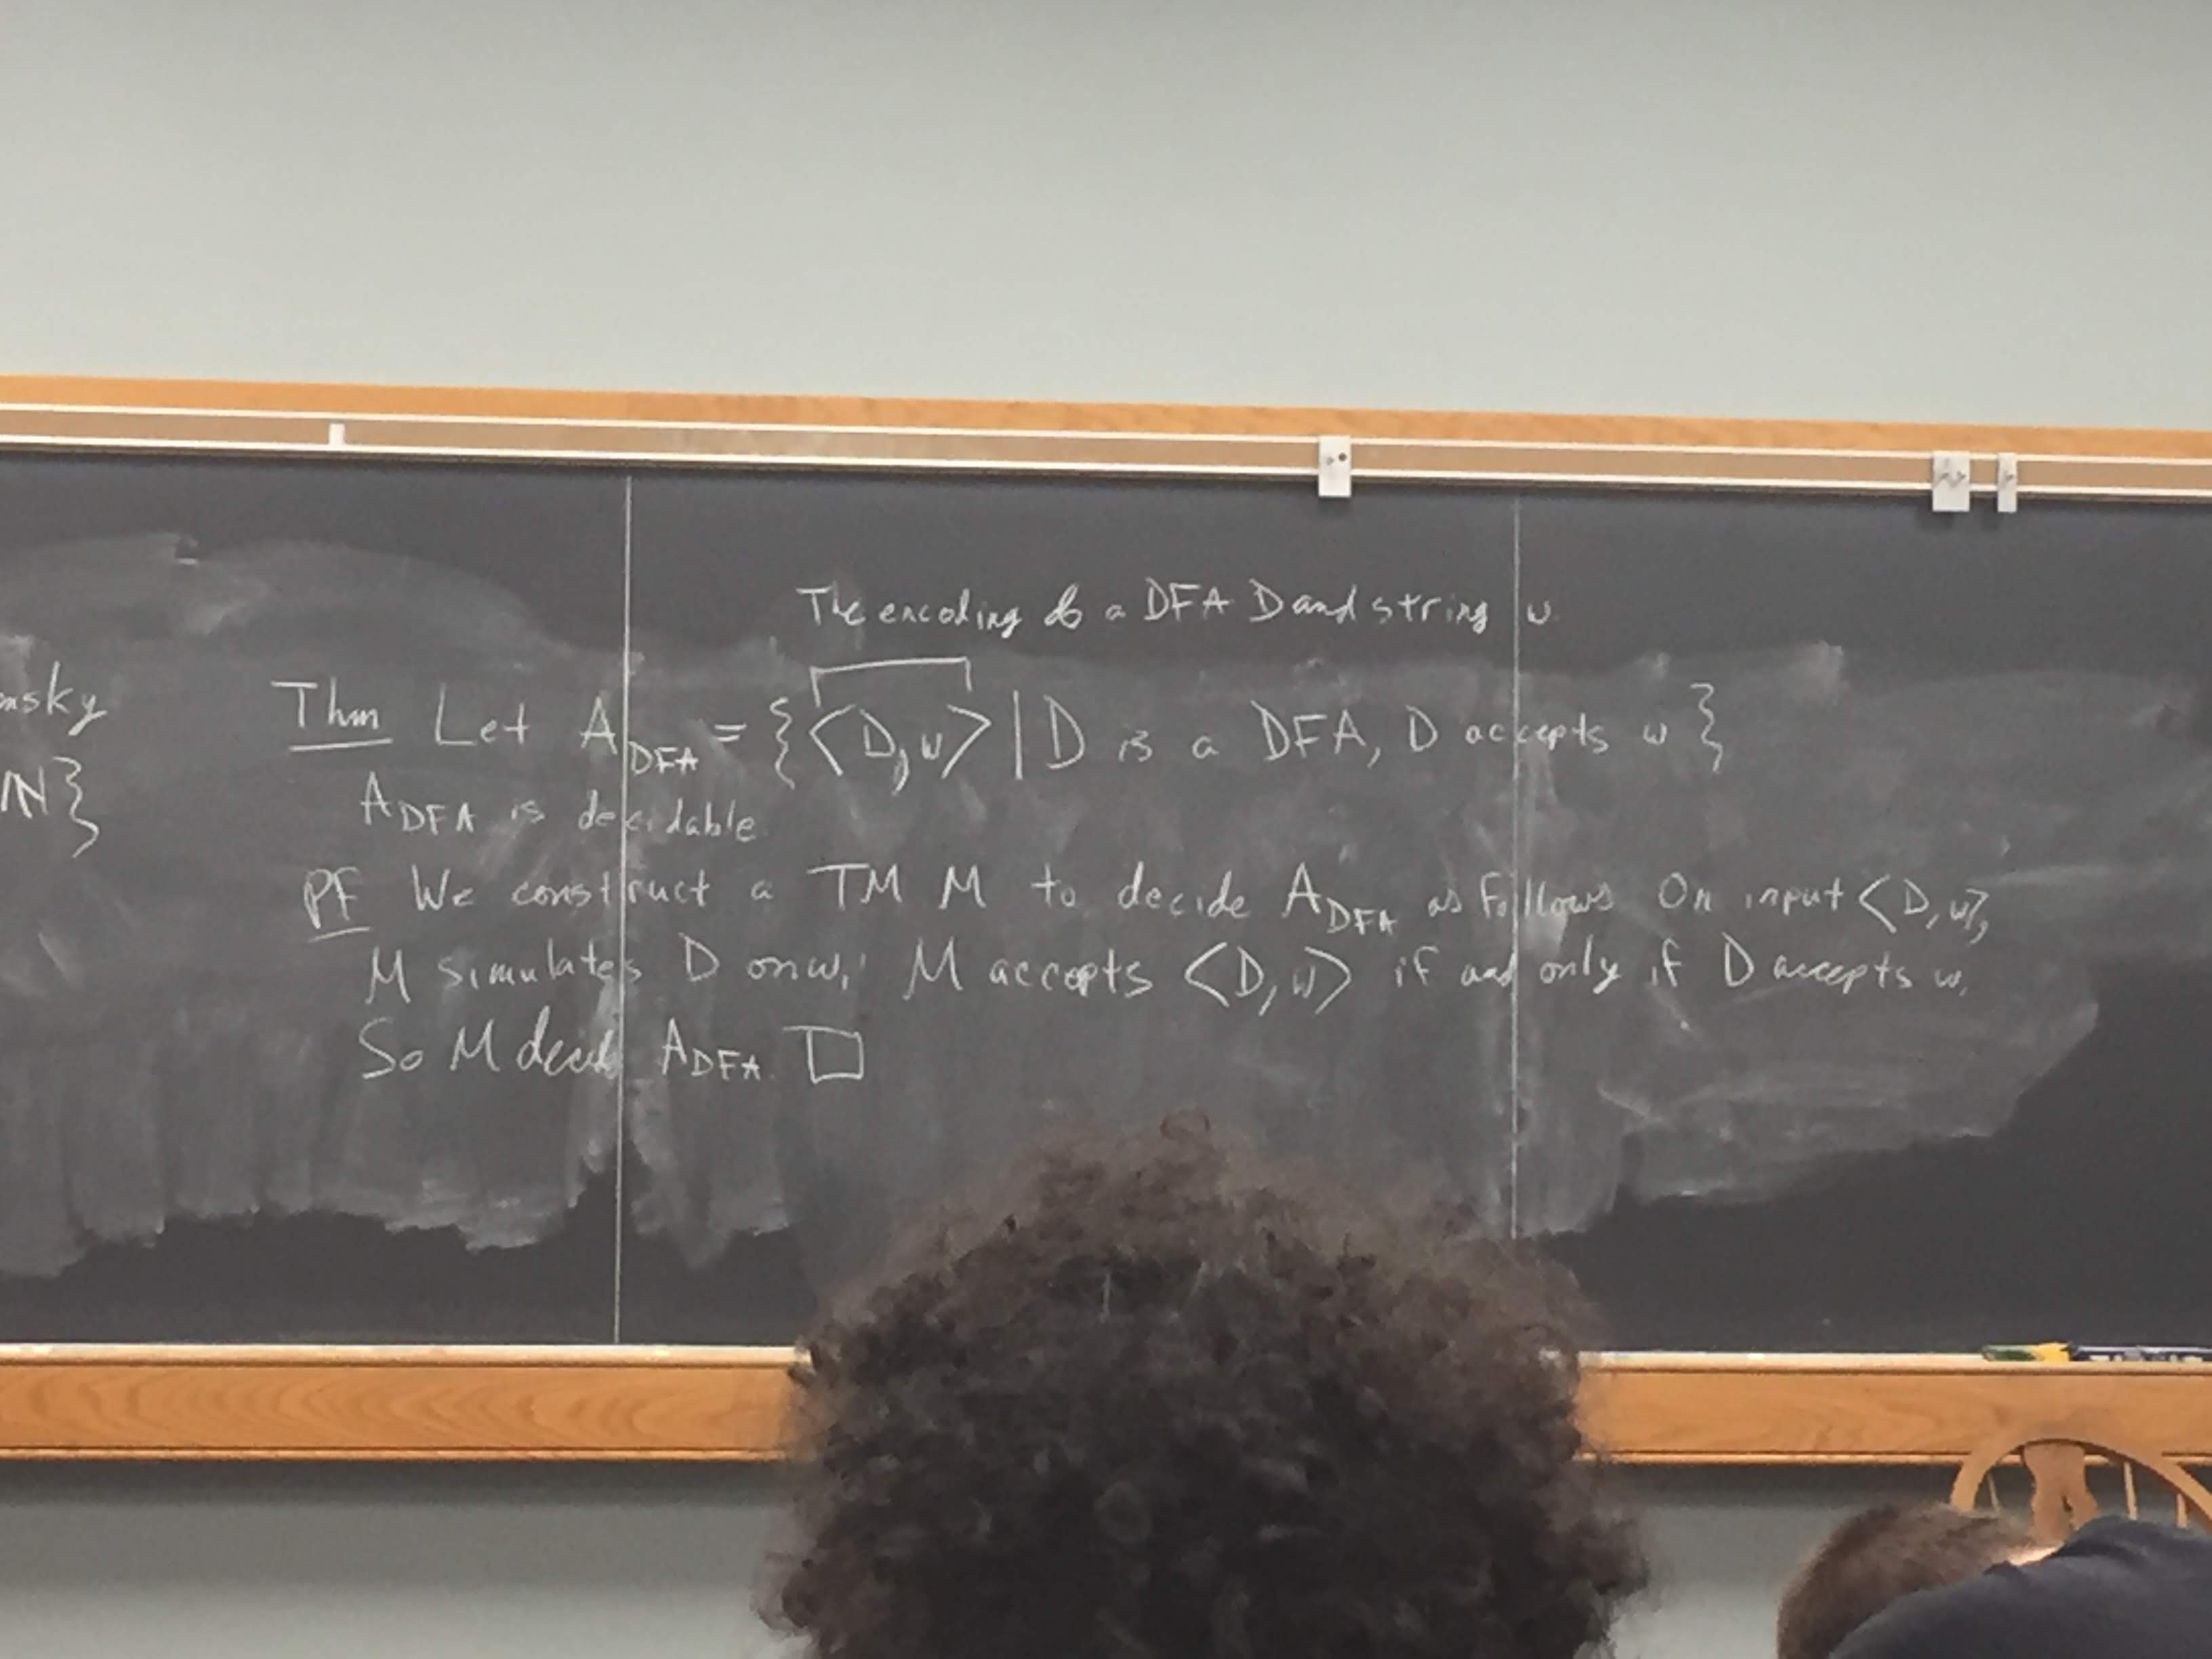 The encoding of a DFA D and string w.
Thm Let A_DFA = {<D, w> | D is a DFA, D accepts w}
A_DFA is decidable
PF We construct a TM M to decide A_DFA as follows On input <D, w>,
M simulates D on w; M accepts <D, w> if and only if D accepts w.
So M A_DFA. □
nsky
N}